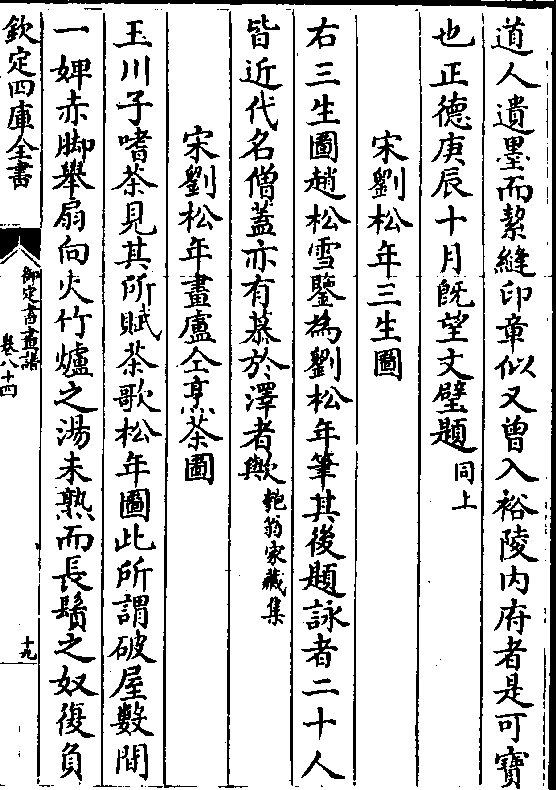 道人遺墨而縫印章似又曾入裕陵内府者是可寶
也正德庚辰十月旣望文璧題同上
宋劉松年三生圖
右三生圖趙松雪鑒為劉松年筆其後題詠者二十人
皆近代名僧蓋亦有慕於澤者歟匏翁家藏集
宋劉松年畫盧仝烹茶圖
玉川子嗜茶見其所賦茶歌松年圖此所謂破屋數間
一婢赤脚舉扇向火竹爐之湯未熟而長鬚之奴復負
欽定四庫全書
御定書畫譜
卷八十四
十九